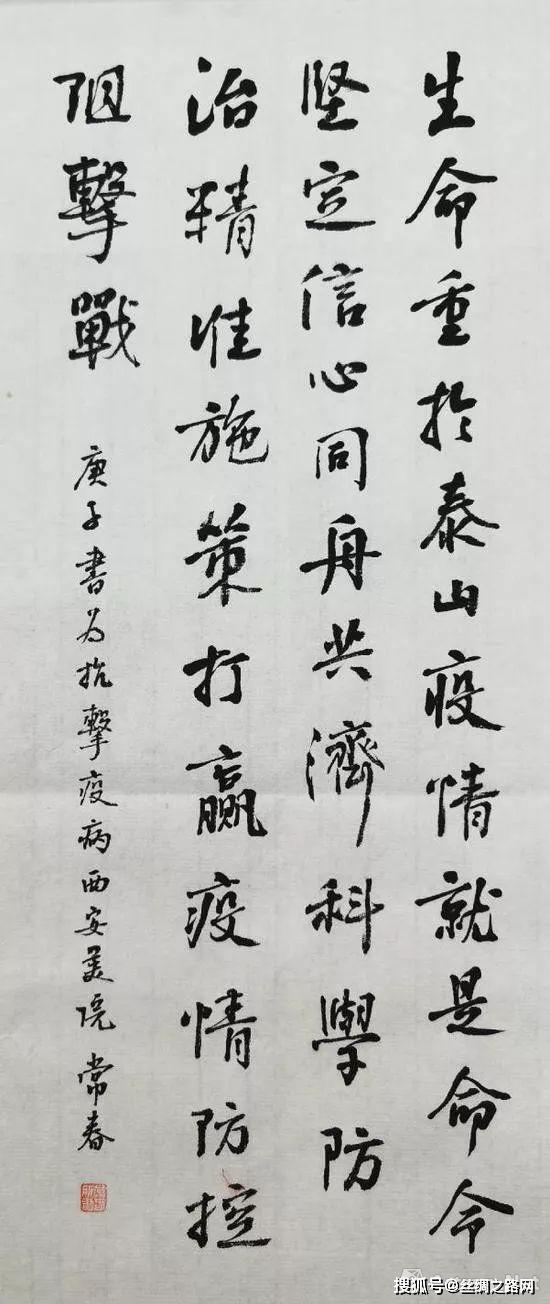 生命重於泰山疫情就是命令
堅定信心同舟共濟科學防
治精准施策打贏疫情防控
阻擊戰
庚子書为抗擊疫病西安美院常春
搜狐号@丝绸之路网